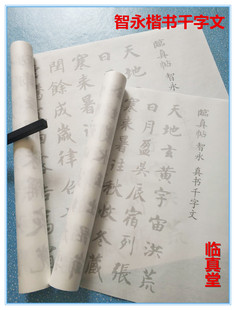 智永楷书千字文
临真帖 智永 真书千字文
天地玄黄宇宙洪荒
日月盈昃辰宿列張
寒来暑往秋收冬藏
临真帖 智永
天地
日月
寒来暑
閏餘成歲律
临真堂